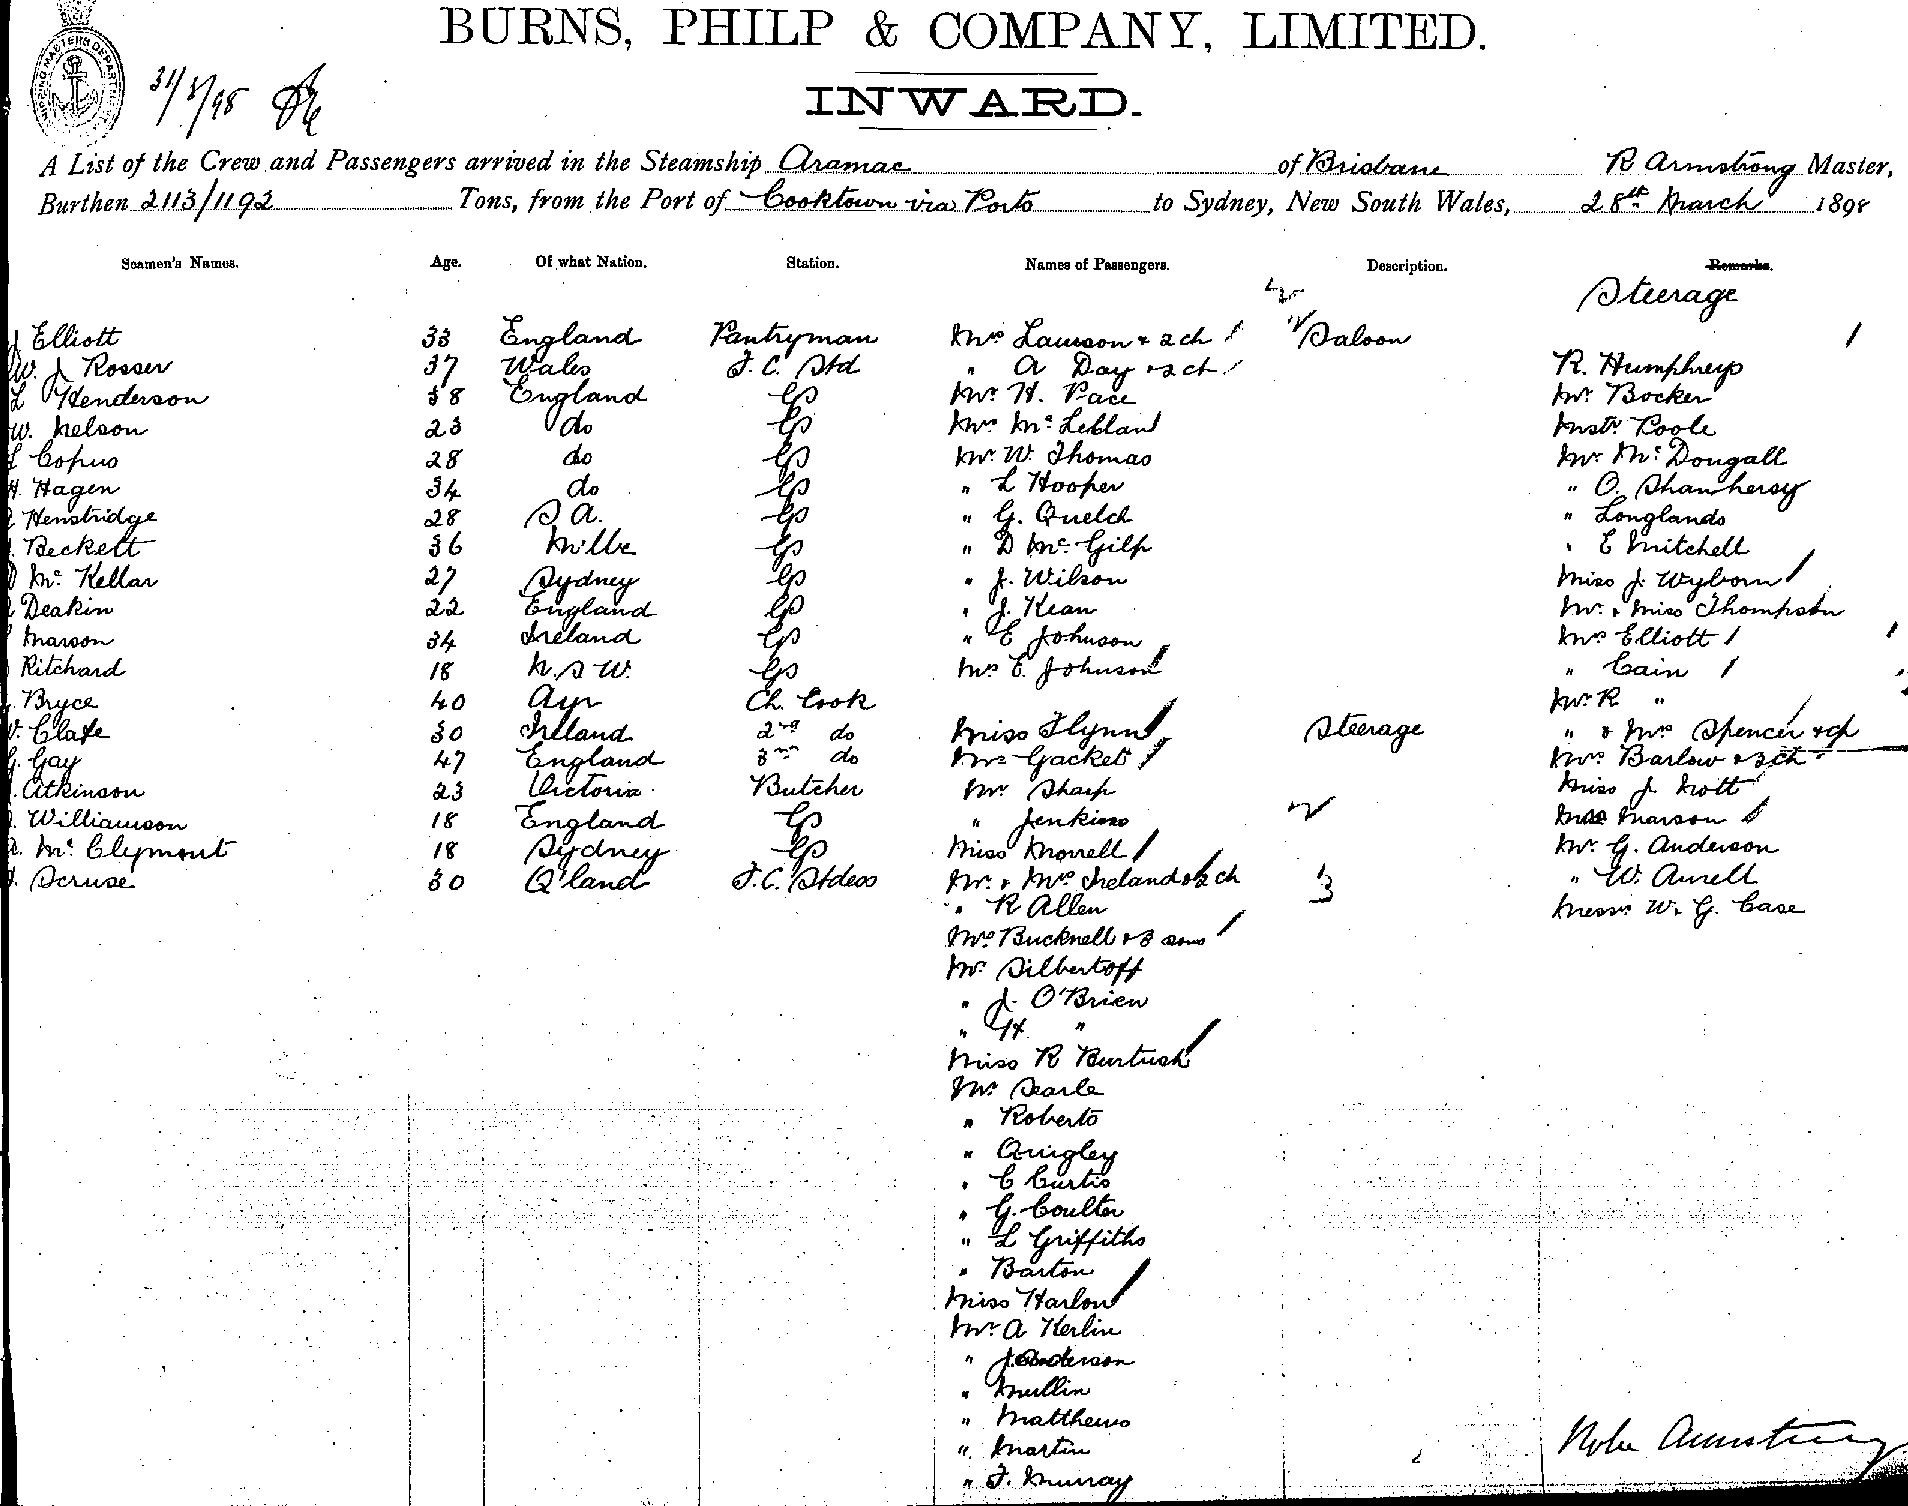 BURNS, PHILP & COMPANY, LIMITED.
31/3/98
INWARD.
A List of the Crew and Passengers arrived in the Steamship Aramac of Brisbane R Armstrong Master,
Burthen 2113/1192 Tons, from the Port of Cooktown via Ports to Sydney, New South Wales, 28th March 1898
Seamen's Names. Age. Of what Nation. Station. Names of Passengers. Description. Remarks.
Steerage
J Elliott 33 England Pantryman Mrs Lawson & 2 ch Saloon
W. J Rosser 37 Wales F. C. Std " A Day & 2 ch R. Humphreys
L Henderson 38 England Mr H. Pace Mr Bocker
W. Nelson 23 do Mrs McLeblan Mstr Poole
L Copus 28 do Mr W. Thomas Mr McDougall
H. Hagen 34 do " L Hooper " O.
Henstridge 28 S A. " G. Quelch " Longlands
Beckett 36 Milbe " D McGilp " E Mitchell
McKellar 27 Sydney " J. Wilson Miss J. Wyborn
Deakin 22 England " J. Kean Mr & Miss Thompson
Marson 34 Ireland " E Johnson Mrs Elliott
Ritchard 18 N. S W. Mrs E. Johnson " Cain
Bryce 40 Ayr Ch. Cook Mr R "
Clafe 30 Ireland 2nd do Miss Flynn Steerage " & Mrs Spencer
G. Gay 47 England 3rd do Mrs Gacket Mrs Barlow & 3 ch
Atkinson 23 Victoria Butcher Mr Sharp Miss J. Nott
Williamson 18 England " Jenkins Miss Marson
McClymont 18 Sydney Miss Morrell Mr G. Anderson
Scruse 30 Q'land F. C. Stdess Mr & Mrs Ireland & 2 ch " W. Aurell
" R Allen Messrs W. G. Case
Mrs Bucknell & 3 sons
Mr Silbertoff
" J. O'Brien
" H "
Miss R Burtush
Mr Searle
" Roberts
" Quigley
" C Curtis
" G. Coulter
" L Griffiths
" Barton
Miss Harlon
Mr A Kerlin
" J. Anderson
" Mullin
" Matthews
" Martin
" F. Murray
Robt Armstrong